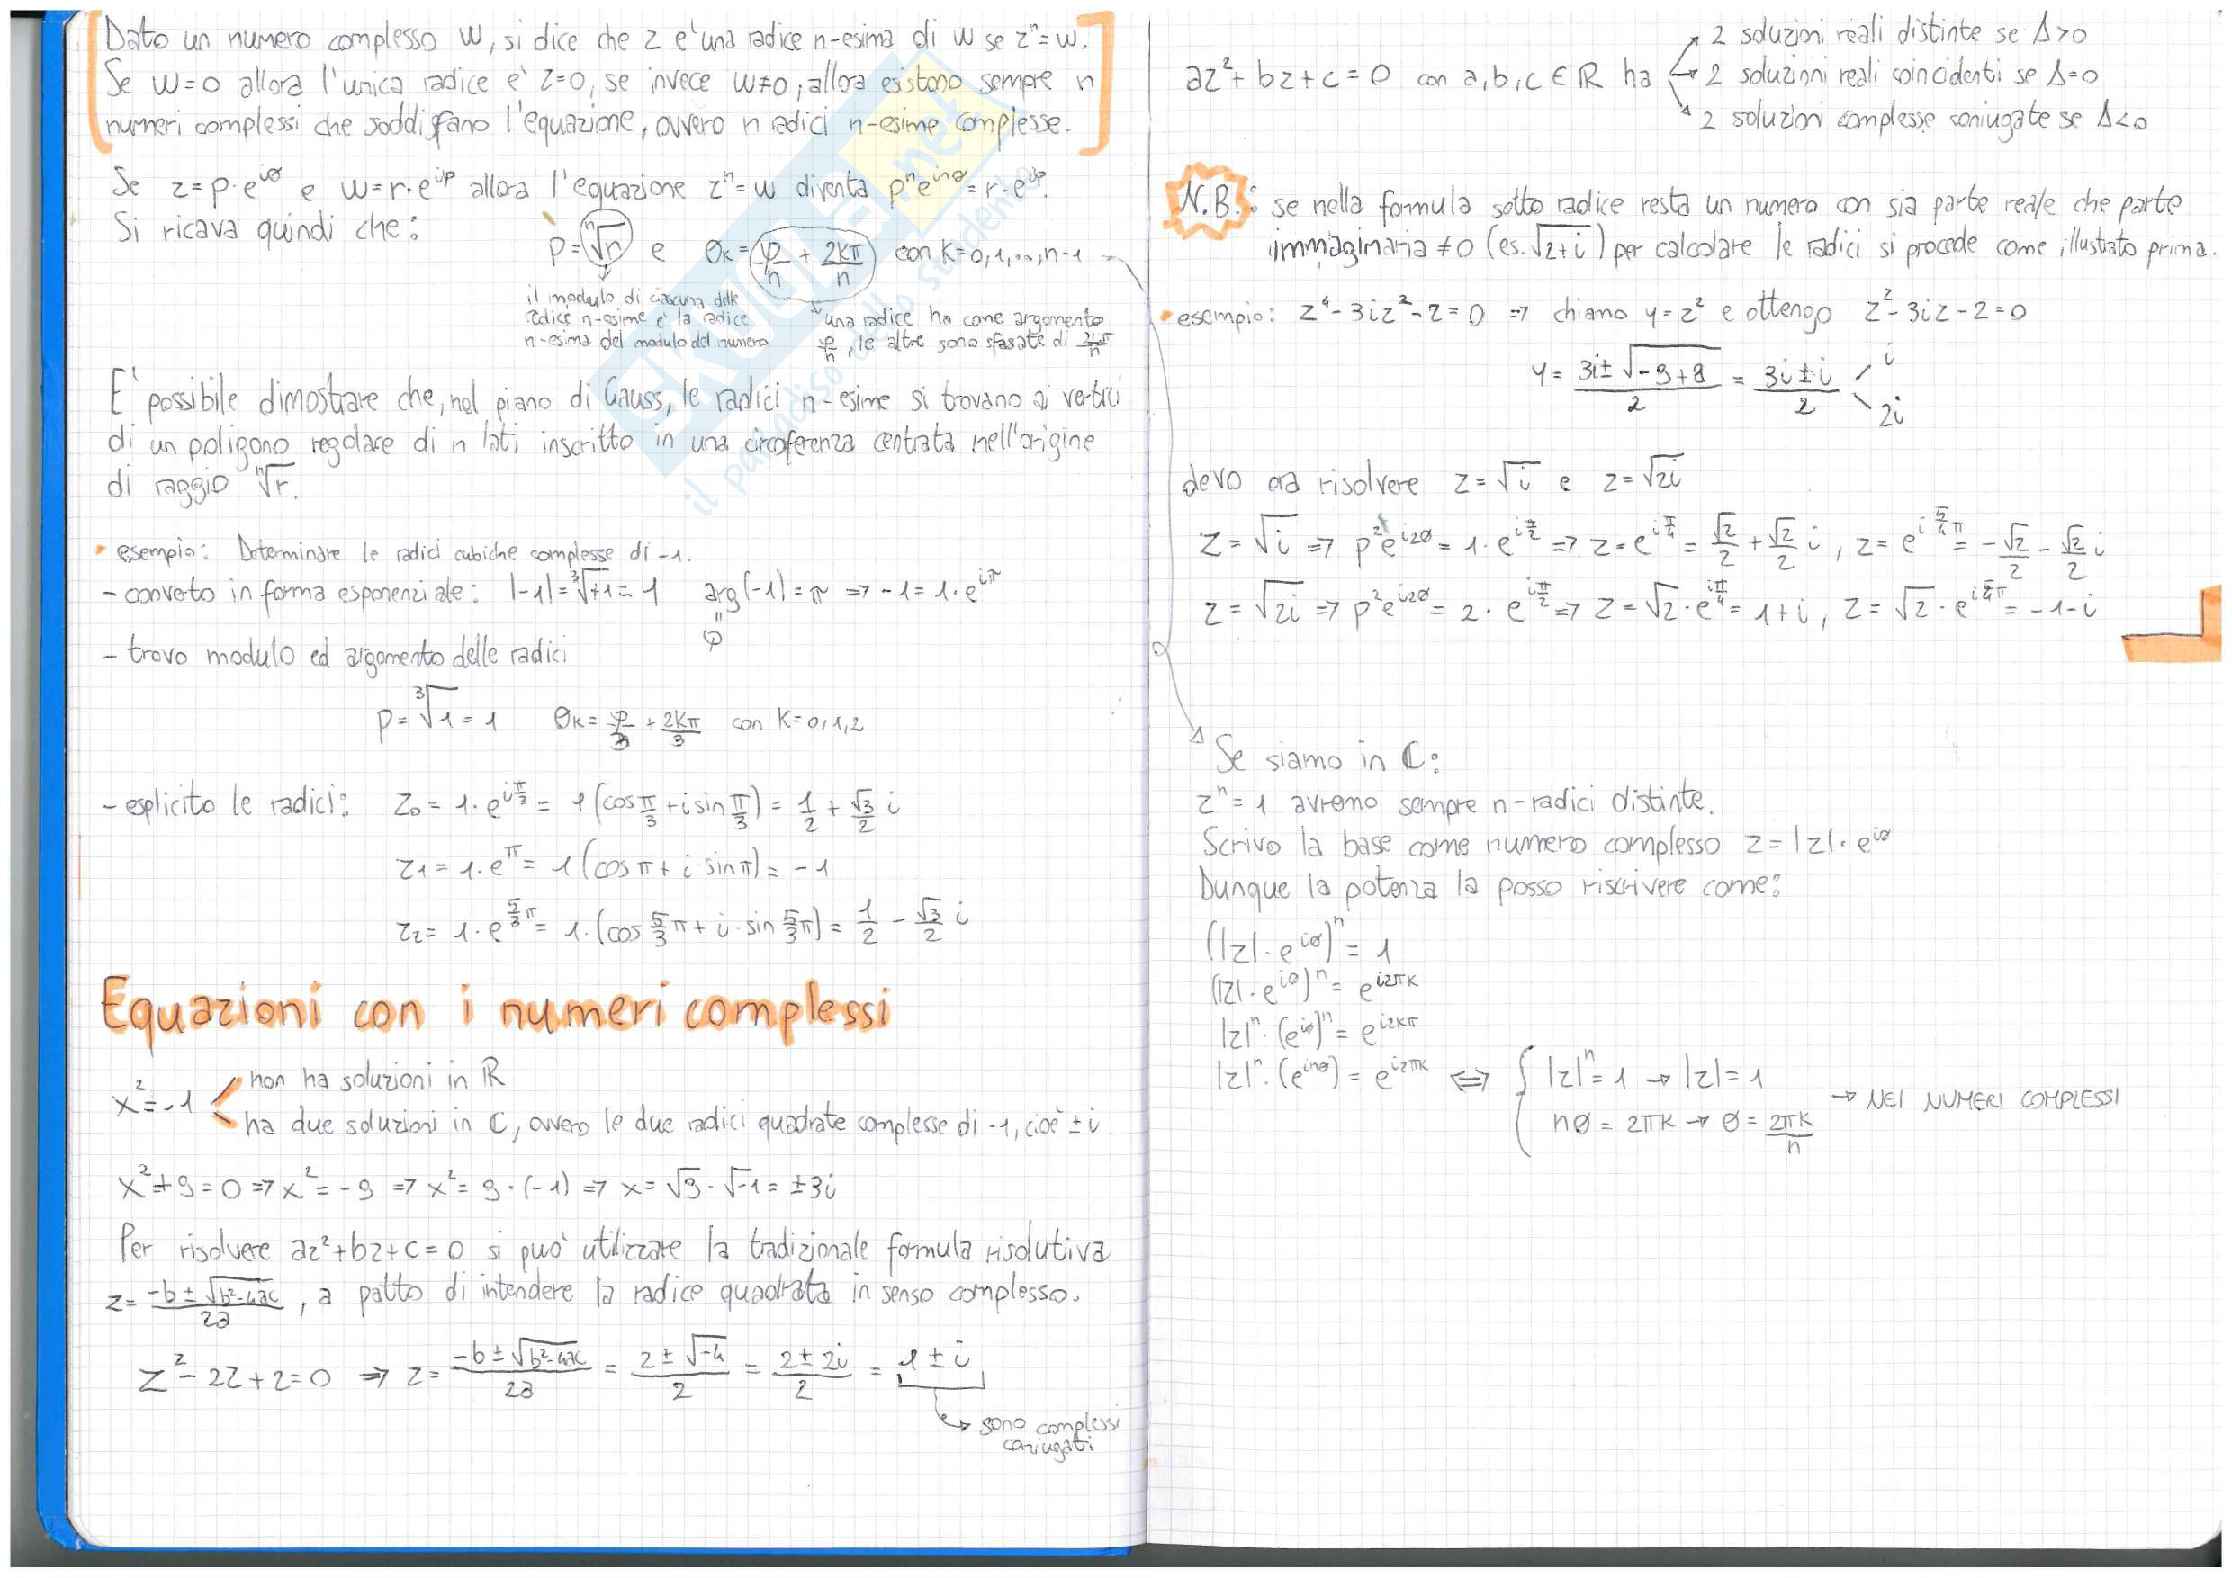 Dato un numero complesso w, si dice che z e' una radice n-esima di w se zⁿ=w.
Se w=0 allora l'unica radice e' z=0, se invece w≠0, allora esistono sempre n
numeri complessi che soddisfano l'equazione, ovvero n radici n-esime complesse.
Se z=ρ·e^(iθ) e w=r·e^(iφ) allora l'equazione zⁿ=w diventa ρⁿe^(inθ)=r·e^(iφ).
Si ricava quindi che:
ρ=ⁿ√r e θk=φ/n + 2kπ/n con k=0,1,...,n-1
il modulo di ciascuna delle
radice n-esime e' la radice
n-esima del modulo del numero
una radice ha come argomento
φ/n, le altre sono sfasate di 2π/n
E' possibile dimostrare che, nel piano di Gauss, le radici n-esime si trovano ai vertici
di un poligono regolare di n lati inscritto in una circoferenza centrata nell'origine
di raggio ⁿ√r.
• esempio: Determinare le radici cubiche complesse di -1.
- converto in forma esponenziale: |-1|=³√+1=1 arg(-1)=π => -1=1·e^(iπ)
" φ
- trovo modulo ed argomento delle radici
ρ=³√1=1 θk=φ/3+2kπ/3 con k=0,1,2
- esplicito le radici: z0=1·e^(iπ/3)=1(cos π/3+i sin π/3)=1/2+√3/2 i
z1=1·e^π=1(cos π+i sin π)=-1
z2=1·e^(5/3 π)=1·(cos 5/3 π+i·sin 5/3 π)=1/2-√3/2 i
Equazioni con i numeri complessi
x²=-1
non ha soluzioni in ℝ
ha due soluzioni in ℂ, ovvero le due radici quadrate complesse di -1, cioe' ±i
x²+9=0 => x²=-9 => x²=9·(-1) => x=√9·√-1=±3i
Per risolvere az²+bz+c=0 si puo' utilizzare la tradizionale formula risolutiva
z=(-b±√b²-4ac)/2a, a patto di intendere la radice quadrata in senso complesso.
z²-2z+2=0 => z=(-b±√b²-4ac)/2a=(2±√-4)/2=(2±2i)/2=1±i
sono complessi
coniugati
az²+bz+c=0 con a,b,c∈ℝ ha
2 soluzioni reali distinte se Δ>0
2 soluzioni reali coincidenti se Δ=0
2 soluzioni complesse coniugate se Δ<0
N.B.: se nella formula sotto radice resta un numero con sia parte reale che parte
immaginaria ≠0 (es.√2+i) per calcolare le radici si procede come illustrato prima.
• esempio: z⁴-3iz²-2=0 => chiamo y=z² e ottengo z²-3iz-2=0
y=(3i±√-9+8)/2=(3i±i)/2
i
2i
devo ora risolvere z=√i e z=√2i
z=√i => ρ²e^(i2θ)=1·e^(iπ/2) => z=e^(iπ/4)=√2/2+√2/2 i, z=e^(i5/4 π)=-√2/2-√2/2 i
z=√2i => ρ²e^(i2θ)=2·e^(iπ/2) => z=√2·e^(iπ/4)=1+i, z=√2·e^(i5/4 π)=-1-i
Se siamo in ℂ:
zⁿ=1 avremo sempre n-radici distinte.
Scrivo la base come numero complesso z=|z|·e^(iθ)
Dunque la potenza la posso riscrivere come:
(|z|·e^(iθ))ⁿ=1
(|z|·e^(iθ))ⁿ=e^(i2πk)
|z|ⁿ·(e^(iθ))ⁿ=e^(i2kπ)
|z|ⁿ·(e^(inθ))=e^(i2πk) ⟺ { |z|ⁿ=1 → |z|=1
nθ=2πk → θ=2πk/n
→ NEI NUMERI COMPLESSI